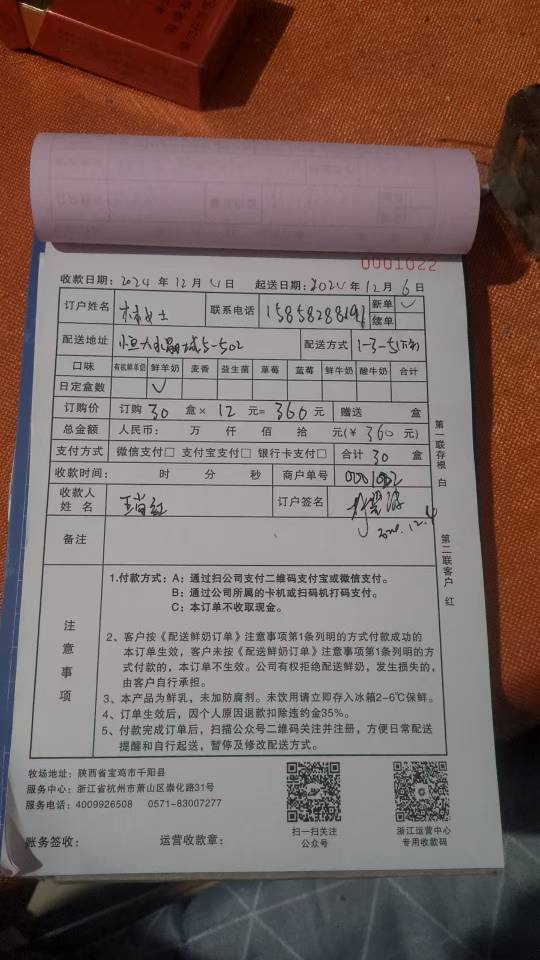 0001022
收款日期：2024 年 12 月 4 日 起送日期：2024 年 12 月 6 日
订户姓名 林女士 联系电话 15858288191 新单 ✓
续单
配送地址 恒大水晶城5-502 配送方式 1-3-5
口味 有机鲜羊奶 鲜羊奶 麦香 益生菌 草莓 蓝莓 鲜牛奶 酸牛奶 合计
日定盒数 ✓
订购价 订购 30 盒 × 12 元= 360 元 赠送 盒
总金额 人民币： 万 仟 佰 拾 元(￥ 360 元)
支付方式 微信支付□ 支付宝支付□ 银行卡支付□ 合计 30 盒
收款时间： 时 分 秒 商户单号 0001022
收款人
姓 名 订户签名
2024.12.4
备注
第一联存根 白
第二联客户 红
注意事项
1.付款方式：A；通过扫公司支付二维码支付宝或微信支付。
B；通过公司所属的卡机或扫码机打码支付。
C；本订单不收取现金。
2、客户按《配送鲜奶订单》注意事项第1条列明的方式付款成功的
本订单生效，客户未按《配送鲜奶订单》注意事项第1条列明的方
式付款的，本订单不生效。公司有权拒绝配送鲜奶，发生损失的，
由客户自行承担。
3、本产品为鲜乳，未加防腐剂。未饮用请立即存入冰箱2-6℃保鲜。
4、订单生效后，因个人原因退款扣除违约金35%。
5、付款完成订单后，扫描公众号二维码关注并注册，方便日常配送
提醒和自行起送，暂停及修改配送方式。
牧场地址：陕西省宝鸡市千阳县
服务中心：浙江省杭州市萧山区崇化路31号
服务电话：4009926508 0571-83007277
扫一扫关注
公众号
浙江运营中心
专用收款码
账务签收： 运营收款章：